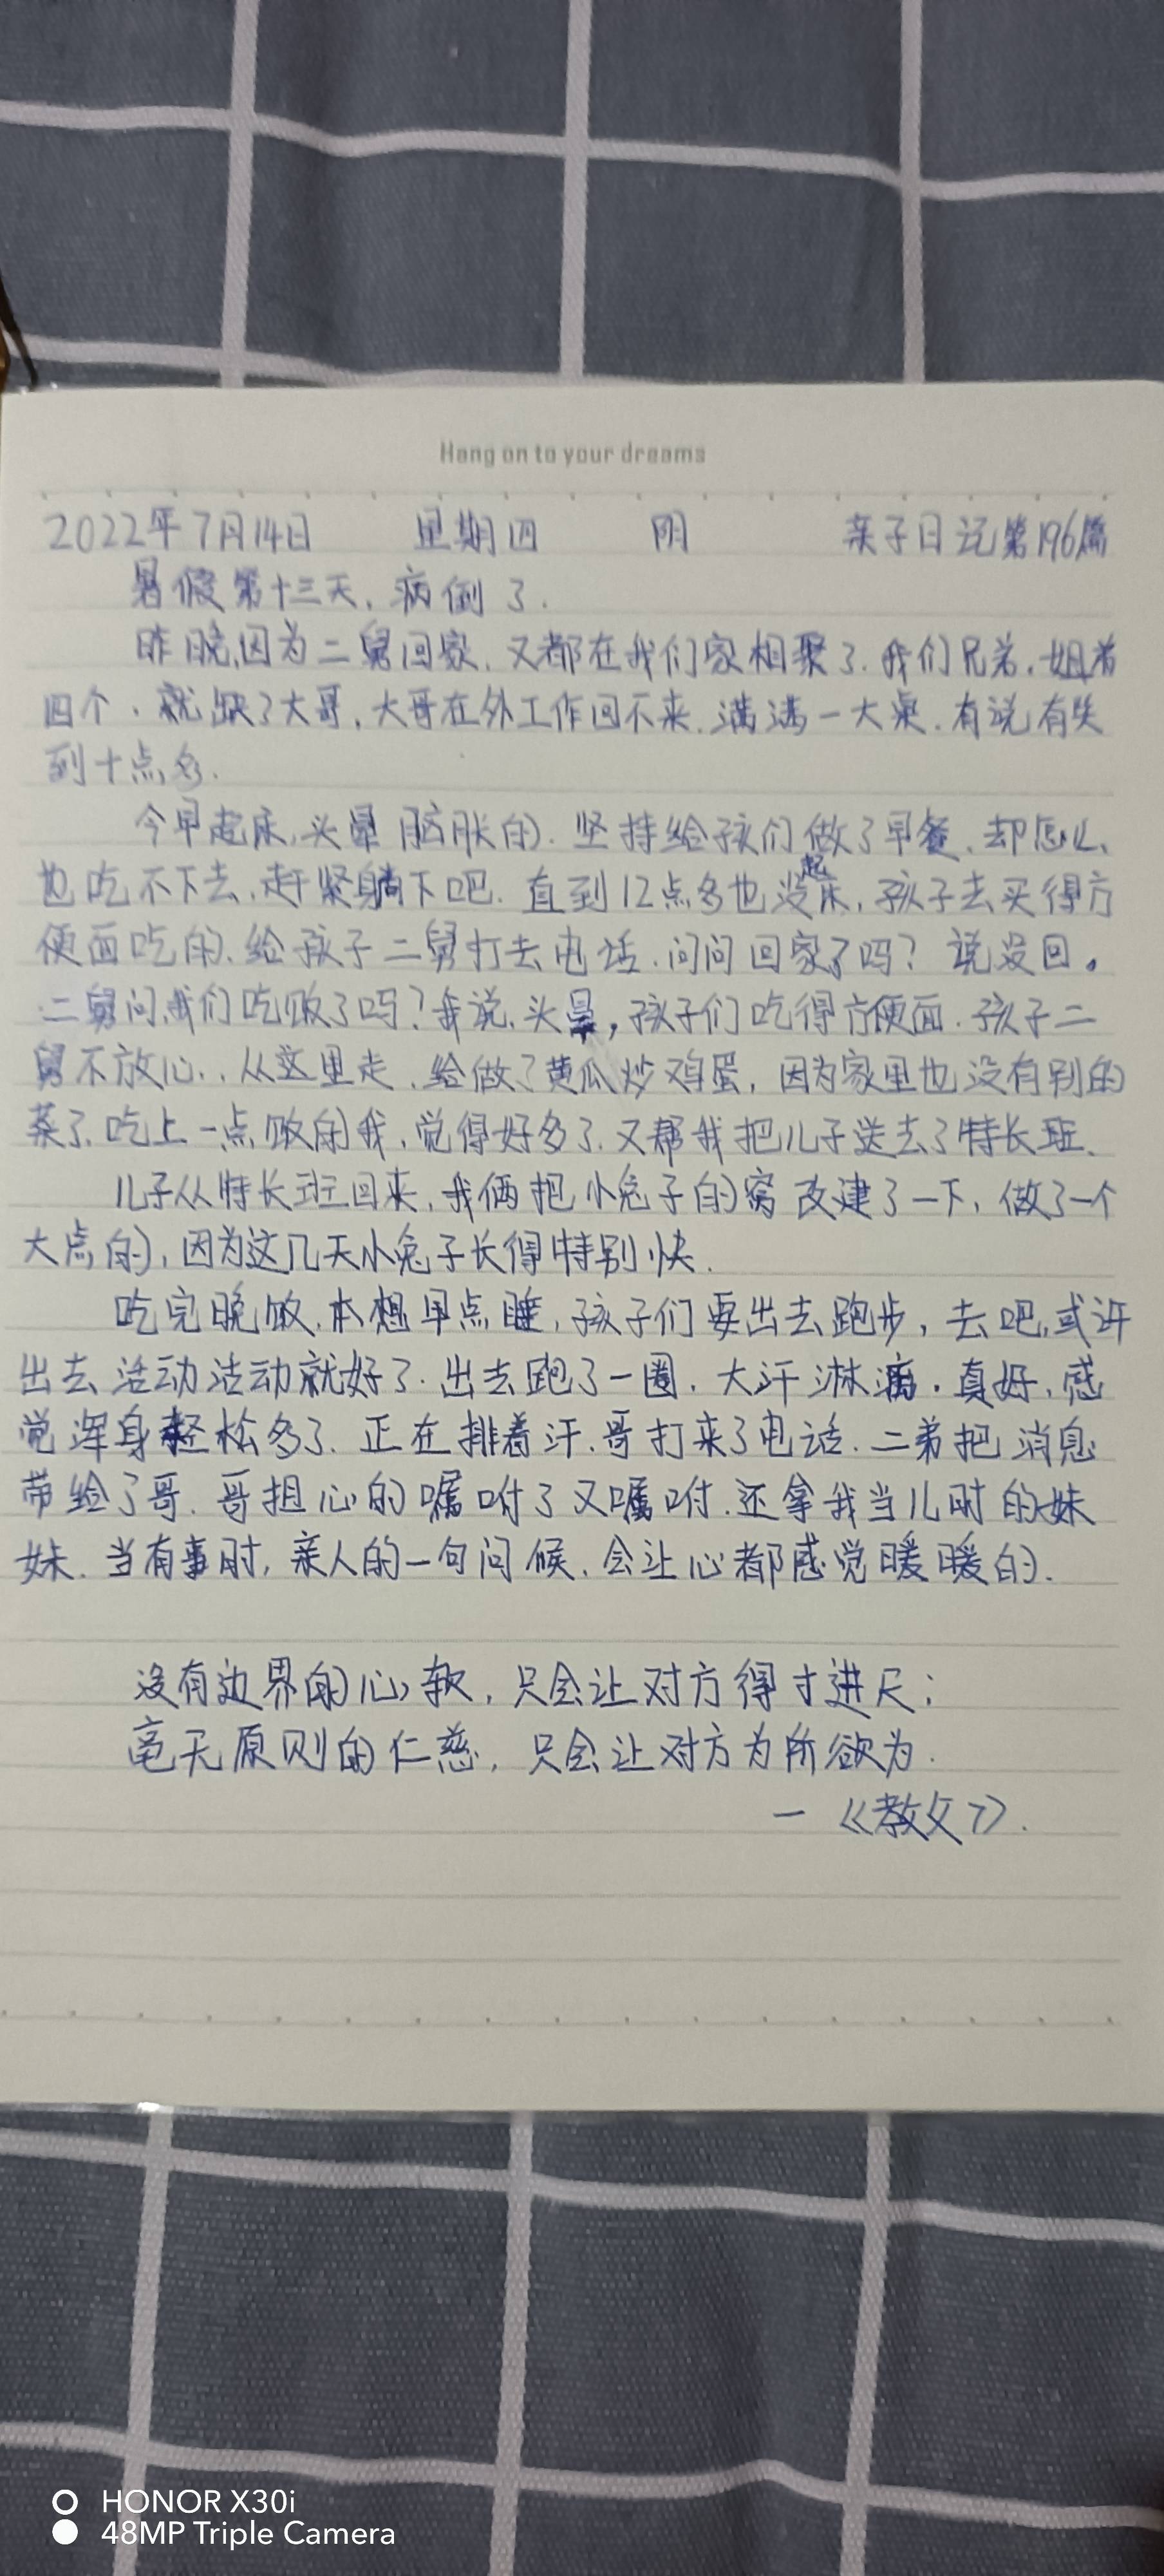 Hang on to your dreams
2022年7月14日 星期四 阴 亲子日记第196篇
暑假第十三天,病倒了.
昨晚,因为二舅回家,又都在我们家相聚了.我们兄弟,姐弟
四个,就缺了大哥,大哥在外工作回不来.满满一大桌.有说有笑
到十点多.
今早起床,头晕脑胀的.坚持给孩们做了早餐.却怎么
也吃不下去,赶紧躺下吧.直到12点多也没起床,孩子去买得方
便面吃的.给孩子二舅打去电话.问问回家了吗?说没回。
二舅问,我们吃饭了吗?我说,头晕,孩子们吃得方便面.孩子二
舅不放心..从这里走.给做了黄瓜炒鸡蛋,因为家里也没有别的
菜了.吃上一点饭的我,觉得好多了.又帮我把儿子送去了特长班.
儿子从特长班回来,我俩把小兔子的窝改建了一下,做了一个
大点的,因为这几天小兔子长得特别快.
吃完晚饭.本想早点睡,孩子们要出去跑步,去吧,或许
出去活动活动就好了.出去跑了一圈.大汗淋漓.真好,感
觉浑身轻松多了.正在排着汗.哥打来了电话.二弟把消息
带给了哥.哥担心的嘱咐了又嘱咐.还拿我当儿时的妹
妹.当有事时,亲人的一句问候.会让心都感觉暖暖的.
没有边界的心软,只会让对方得寸进尺;
毫无原则的仁慈,只会让对方为所欲为.
一《教父7》.
HONOR X30i
48MP Triple Camera